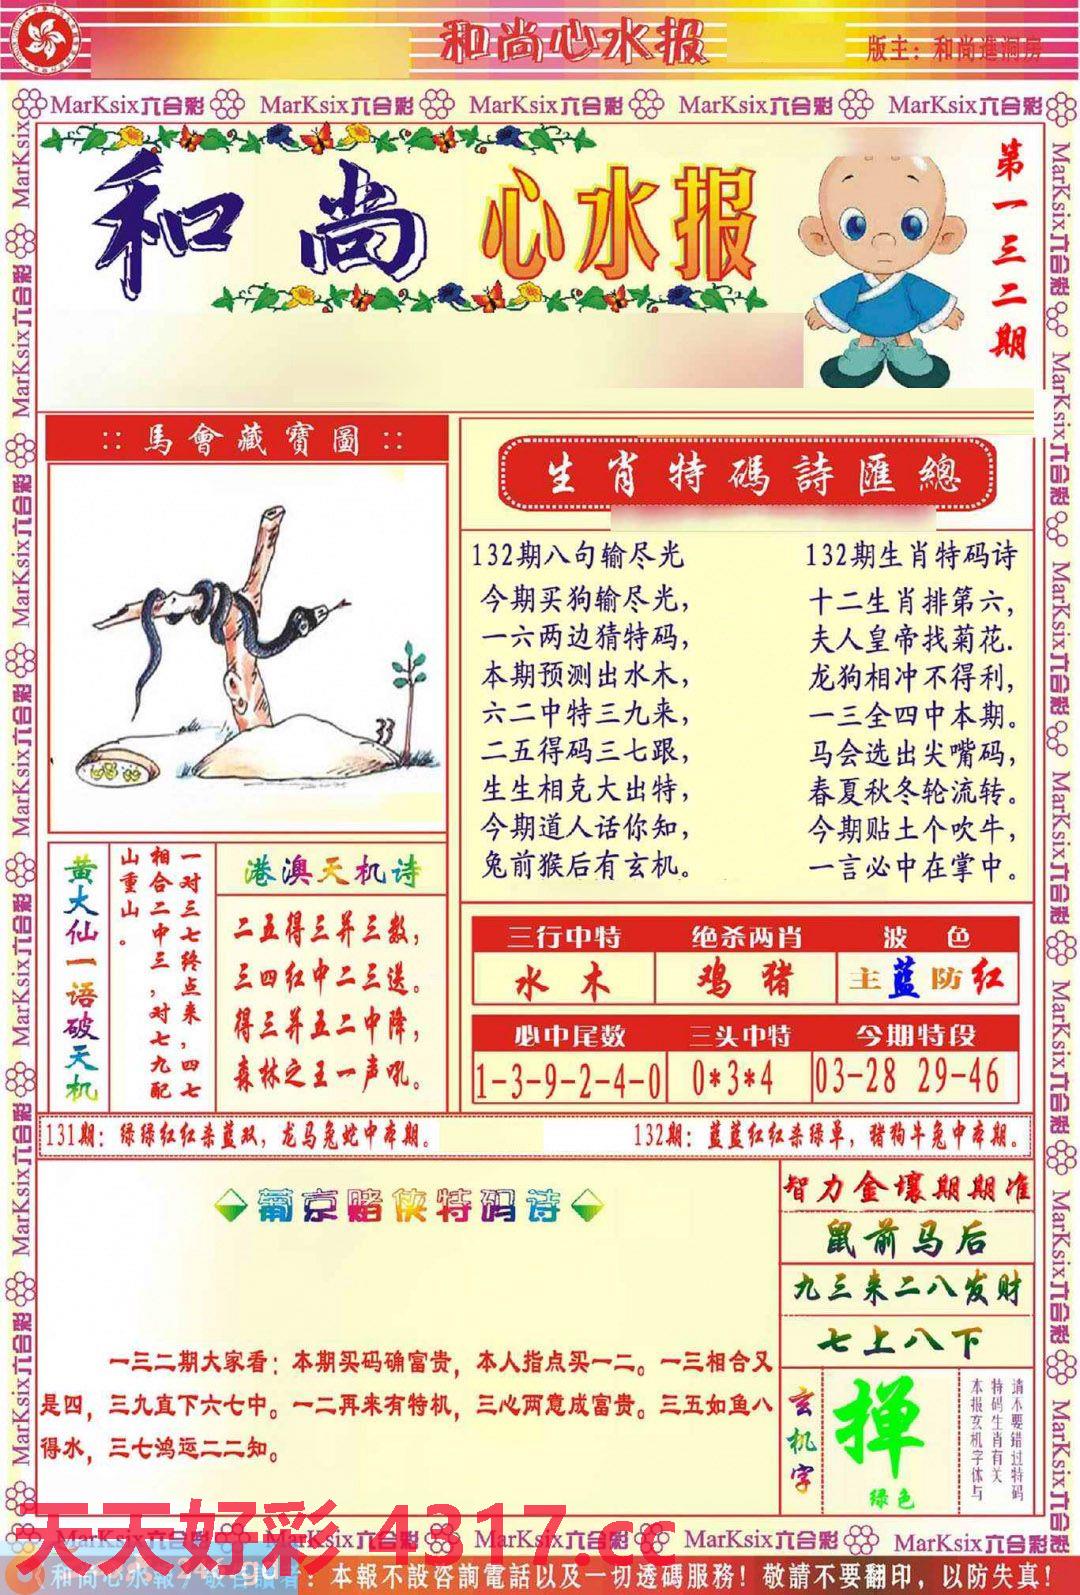 和尚心水报
版主：和尚進洞房
MarKsix六合彩 MarKsix六合彩 MarKsix六合彩 MarKsix六合彩 MarKsix六合彩
和尚 心水报
第一三二期
::馬會藏寶圖::
33
生肖特碼詩匯總
132期八句输尽光
今期买狗输尽光，
一六两边猜特码，
本期预测出水木，
六二中特三九来，
二五得码三七跟，
生生相克大出特，
今期道人话你知，
兔前猴后有玄机。
132期生肖特码诗
十二生肖排第六，
夫人皇帝找菊花.
龙狗相冲不得利，
一三全四中本期。
马会选出尖嘴码，
春夏秋冬轮流转。
今期贴士个吹牛，
一言必中在掌中。
黄大仙一语破天机
一对三七终点来，四七
相合二中三，对七九配
山重山。
港澳天机诗
二五得三并三数，
三四红中二三送。
得三并五二中降，
森林之王一声吼。
三行中特 绝杀两肖 波色
水木 鸡猪 主蓝防红
必中尾数 三头中特 今期特段
1-3-9-2-4-0 0*3*4 03-28 29-46
131期：绿绿红红杀蓝双，龙马兔蛇中本期。
132期：蓝蓝红红杀绿单，猪狗牛兔中本期。
葡京赌侠特码诗
一三二期大家看：本期买码确富贵，本人指点买一二。一三相合又
是四，三九直下六七中。一二再来有特机，三心两意成富贵。三五如鱼八
得水，三七鸿运二二知。
智力金壤期期准
鼠前马后
九三来二八发财
七上八下
玄机字
掸
绿色
请不要错过特码
特码生肖有关
本报玄机字体与
天天好彩 4317.cc
MarKsix六合彩 MarKsix六合彩 MarKsix六合彩 MarKsix六合彩 MarKsix六合彩
和尚心水報 敬告讀者：本報不設咨詢電話以及一切透碼服務！敬請不要翻印，以防失真！